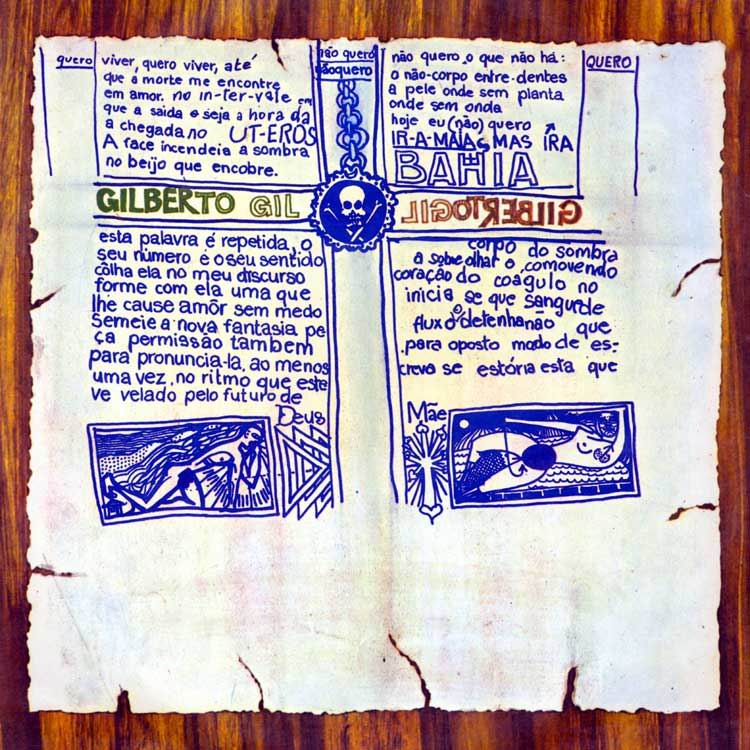 quero
viver, quero viver, até
que a morte me encontre
em amor. no in-ter-vale em
que a saida e seja a hora da
a chegada no UT-EROS
A face incendeia a sombra
no beijo que encobre.
não quero
nãoquero
não quero o que não há:
o não-corpo entre-dentes
a pele onde sem planta
onde sem onda
hoje eu (não) quero
IR-A-MAIAS MAS IRA
BAHIA
QUERO
GILBERTO GIL
GILBERTO GIL
esta palavra é repetida, o
seu número é o seu sentido
côlha ela no meu discurso
forme com ela uma que
lhe cause amôr sem medo
Semeie a nova fantasia pe
ça permissão também
para pronuncia-la, ao menos
uma vez, no ritmo que este
ve velado pelo futuro de
Deus
corpo do sombra
a sobre olhar o comovendo
coração do coagulo no
inicia se que sangue de
fluxo detenha não que
para oposto modo de es-
creva se estória esta que
Mãe